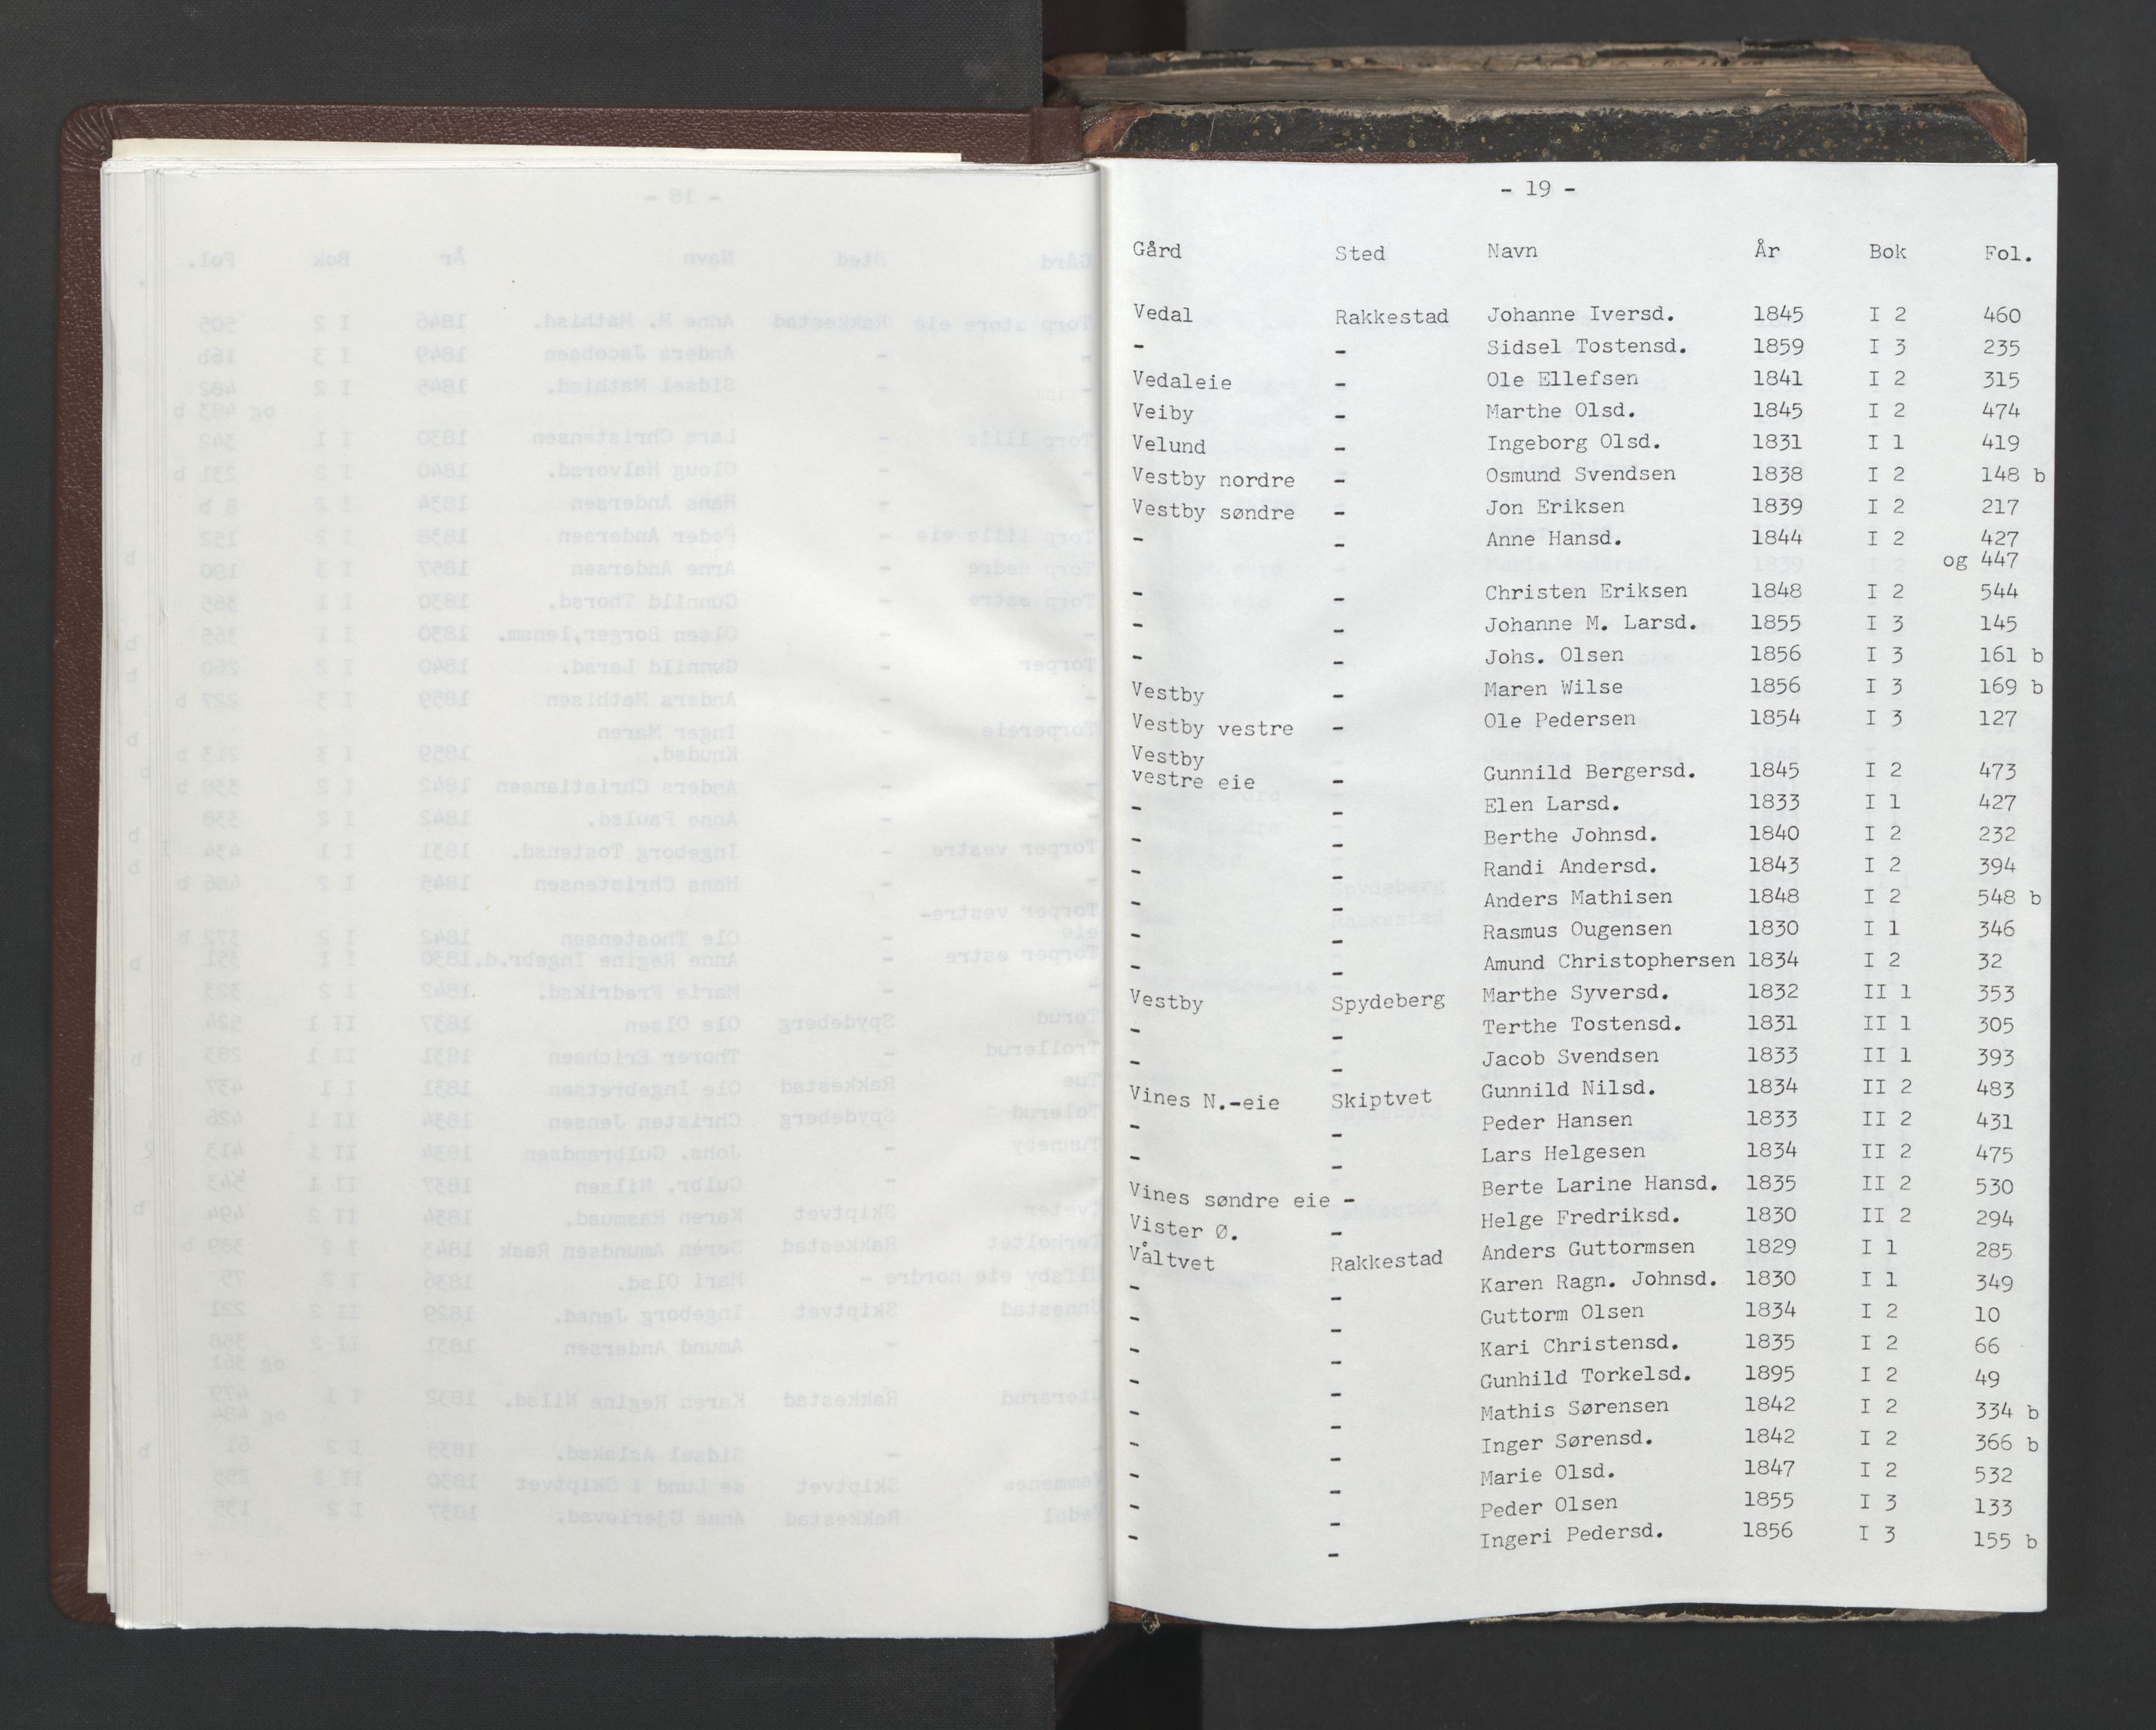 - 19 -
Gård Sted Navn År Bok Fol.
Vedal Rakkestad Johanne Iversd. 1845 I 2 460
- - Sidsel Tostensd. 1859 I 3 235
Vedaleie - Ole Ellefsen 1841 I 2 315
Veiby - Marthe Olsd. 1845 I 2 474
Velund - Ingeborg Olsd. 1831 I 1 419
Vestby nordre - Osmund Svendsen 1838 I 2 148 b
Vestby søndre - Jon Eriksen 1839 I 2 217
- - Anne Hansd. 1844 I 2 427
og 447
- - Christen Eriksen 1848 I 2 544
- - Johanne M. Larsd. 1855 I 3 145
- - Johs. Olsen 1856 I 3 161 b
Vestby - Maren Wilse 1856 I 3 169 b
Vestby vestre - Ole Pedersen 1854 I 3 127
Vestby
vestre eie - Gunnild Bergersd. 1845 I 2 473
- - Elen Larsd. 1833 I 1 427
- - Berthe Johnsd. 1840 I 2 232
- - Randi Andersd. 1843 I 2 394
- - Anders Mathisen 1848 I 2 548 b
- - Rasmus Ougensen 1830 I 1 346
- - Amund Christophersen 1834 I 2 32
Vestby Spydeberg Marthe Syversd. 1832 II 1 353
- - Terthe Tostensd. 1831 II 1 305
- - Jacob Svendsen 1833 II 1 393
Vines N.-eie Skiptvet Gunnild Nilsd. 1834 II 2 483
- - Peder Hansen 1833 II 2 431
- - Lars Helgesen 1834 II 2 475
Vines søndre eie - Berte Larine Hansd. 1835 II 2 530
Vister Ø. - Helge Fredriksd. 1830 II 2 294
Våltvet Rakkestad Anders Guttormsen 1829 I 1 285
- - Karen Ragn. Johnsd. 1830 I 1 349
- - Guttorm Olsen 1834 I 2 10
- - Kari Christensd. 1835 I 2 66
- - Gunhild Torkelsd. 1895 I 2 49
- - Mathis Sørensen 1842 I 2 334 b
- - Inger Sørensd. 1842 I 2 366 b
- - Marie Olsd. 1847 I 2 532
- - Peder Olsen 1855 I 3 133
- - Ingeri Pedersd. 1856 I 3 155 b